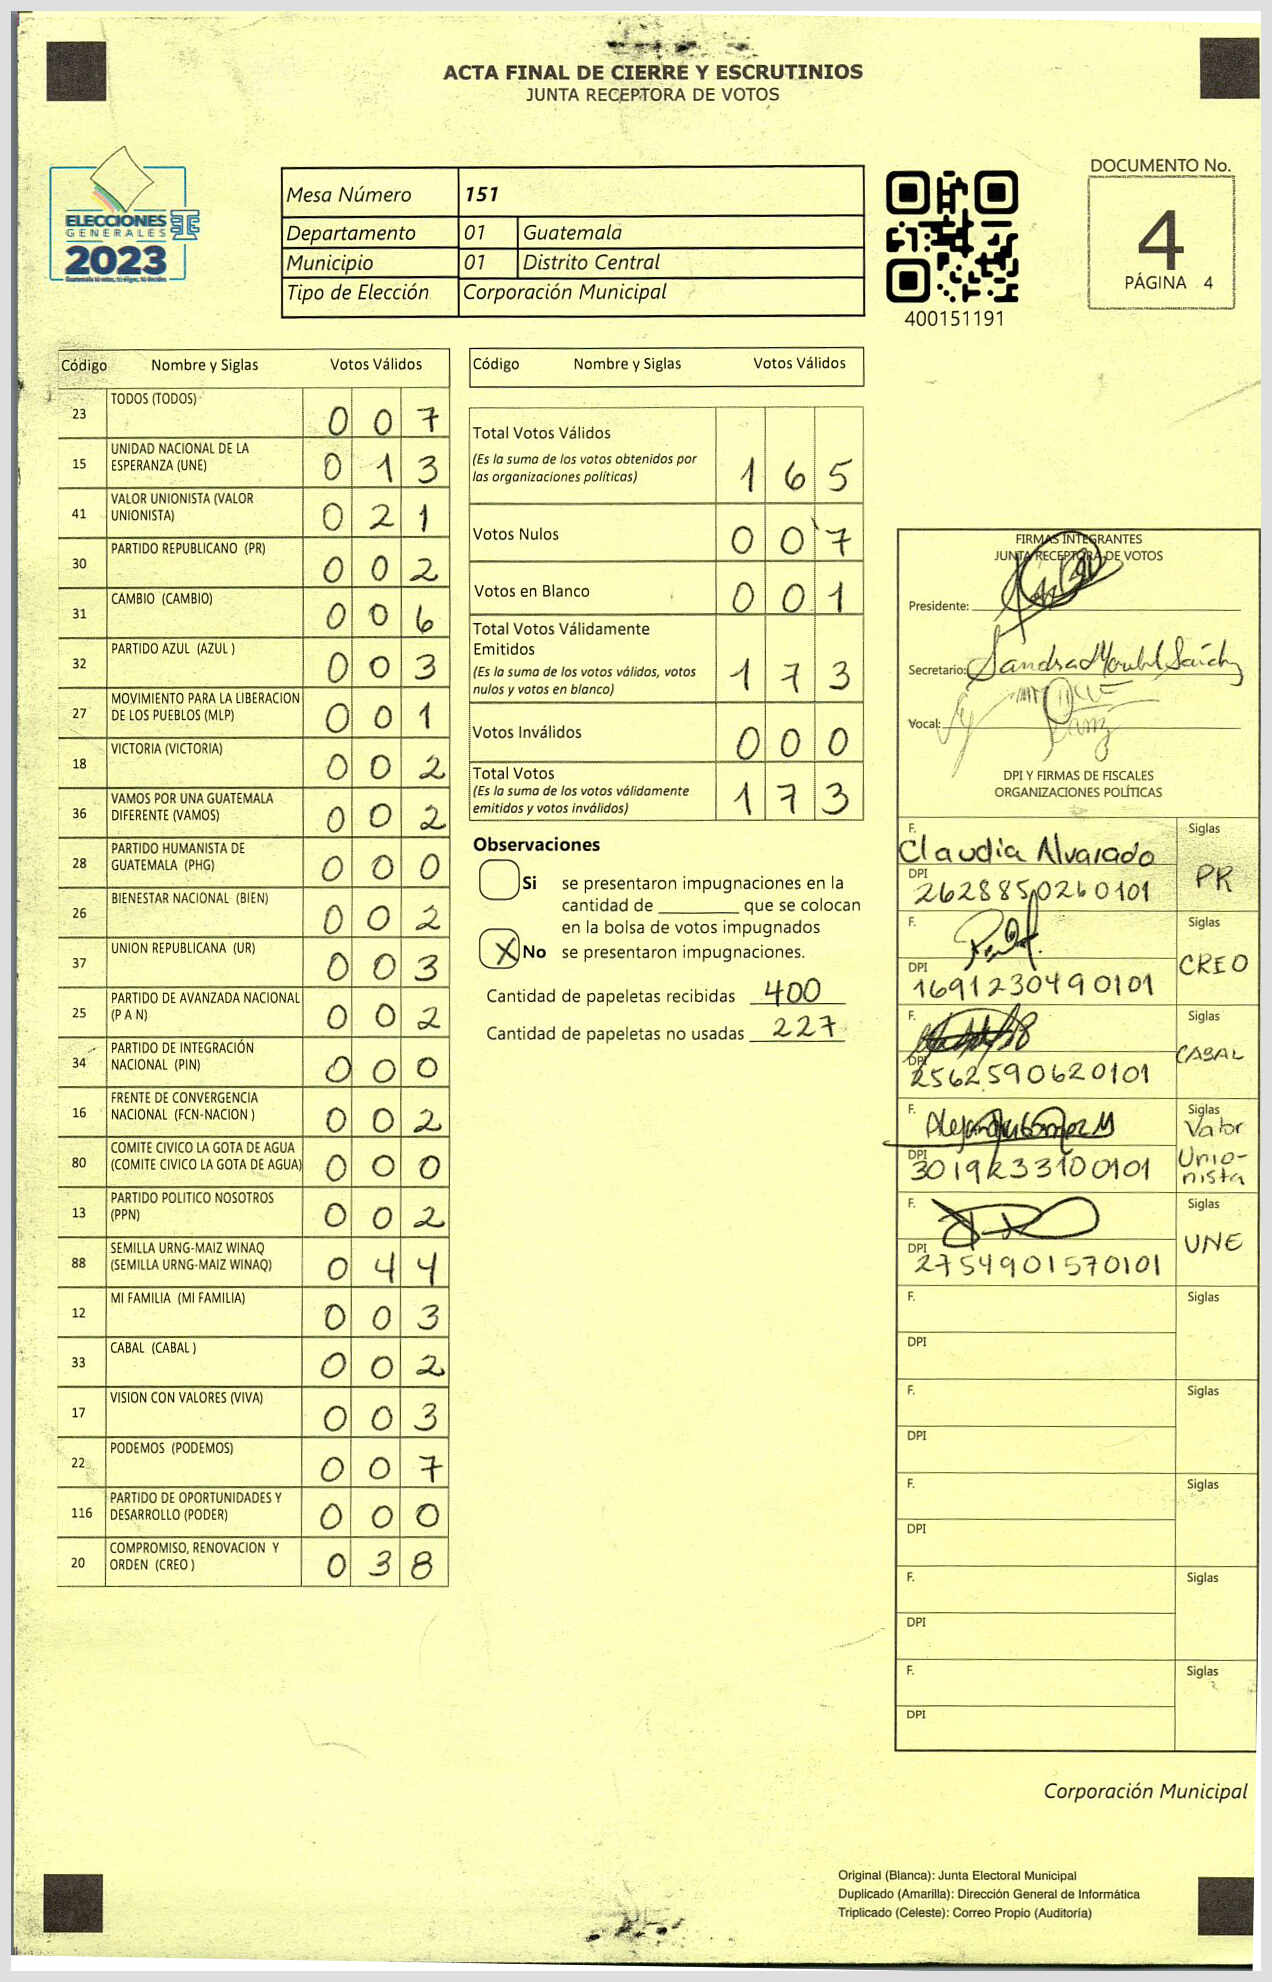 ACTA FINAL DE CIERRE Y ESCRUTINIOS
JUNTA RECEPTORA DE VOTOS
ELECCIONES
GENERALES
2023
Mesa Número 151
Departamento 01 Guatemala
Municipio 01 Distrito Central
Tipo de Elección Corporación Municipal
400151191
DOCUMENTO No.
4
PÁGINA 4
Código Nombre y Siglas Votos Válidos
23 TODOS (TODOS) 0 0 7
15 UNIDAD NACIONAL DE LA
ESPERANZA (UNE) 0 1 3
41 VALOR UNIONISTA (VALOR
UNIONISTA) 0 2 1
30 PARTIDO REPUBLICANO (PR) 0 0 2
31 CAMBIO (CAMBIO) 0 0 6
32 PARTIDO AZUL (AZUL ) 0 0 3
27 MOVIMIENTO PARA LA LIBERACION
DE LOS PUEBLOS (MLP) 0 0 1
18 VICTORIA (VICTORIA) 0 0 2
36 VAMOS POR UNA GUATEMALA
DIFERENTE (VAMOS) 0 0 2
28 PARTIDO HUMANISTA DE
GUATEMALA (PHG) 0 0 0
26 BIENESTAR NACIONAL (BIEN) 0 0 2
37 UNION REPUBLICANA (UR) 0 0 3
25 PARTIDO DE AVANZADA NACIONAL
(P A N) 0 0 2
34 PARTIDO DE INTEGRACIÓN
NACIONAL (PIN) 0 0 0
16 FRENTE DE CONVERGENCIA
NACIONAL (FCN-NACION ) 0 0 2
80 COMITE CIVICO LA GOTA DE AGUA
(COMITE CIVICO LA GOTA DE AGUA) 0 0 0
13 PARTIDO POLITICO NOSOTROS
(PPN) 0 0 2
88 SEMILLA URNG-MAIZ WINAQ
(SEMILLA URNG-MAIZ WINAQ) 0 4 4
12 MI FAMILIA (MI FAMILIA) 0 0 3
33 CABAL (CABAL ) 0 0 2
17 VISION CON VALORES (VIVA) 0 0 3
22 PODEMOS (PODEMOS) 0 0 7
116 PARTIDO DE OPORTUNIDADES Y
DESARROLLO (PODER) 0 0 0
20 COMPROMISO, RENOVACION Y
ORDEN (CREO ) 0 3 8
Código Nombre y Siglas Votos Válidos
Total Votos Válidos
(Es la suma de los votos obtenidos por
las organizaciones políticas) 1 6 5
Votos Nulos 0 0 7
Votos en Blanco 0 0 1
Total Votos Válidamente
Emitidos
(Es la suma de los votos válidos, votos
nulos y votos en blanco) 1 7 3
Votos Inválidos 0 0 0
Total Votos
(Es la suma de los votos válidamente
emitidos y votos inválidos) 1 7 3
Observaciones
Si se presentaron impugnaciones en la
cantidad de ________ que se colocan
en la bolsa de votos impugnados
X No se presentaron impugnaciones.
Cantidad de papeletas recibidas 400
Cantidad de papeletas no usadas 227
FIRMAS INTEGRANTES
JUNTA RECEPTORA DE VOTOS
Presidente:
Secretario: Sandra
Vocal:
DPI Y FIRMAS DE FISCALES
ORGANIZACIONES POLÍTICAS
F. Siglas
Claudia Alvarado PR
DPI
2628850260101
F. Siglas
CREO
DPI
1691230490101
F. Siglas
CABAL
DPI
2562590620101
F. Siglas
Valor
Unio-
nista
DPI
F. Siglas
UNE
DPI
2754901570101
F. Siglas
DPI
F. Siglas
DPI
F. Siglas
DPI
F. Siglas
DPI
F. Siglas
DPI
Corporación Municipal
Original (Blanca): Junta Electoral Municipal
Duplicado (Amarilla): Dirección General de Informática
Triplicado (Celeste): Correo Propio (Auditoría)